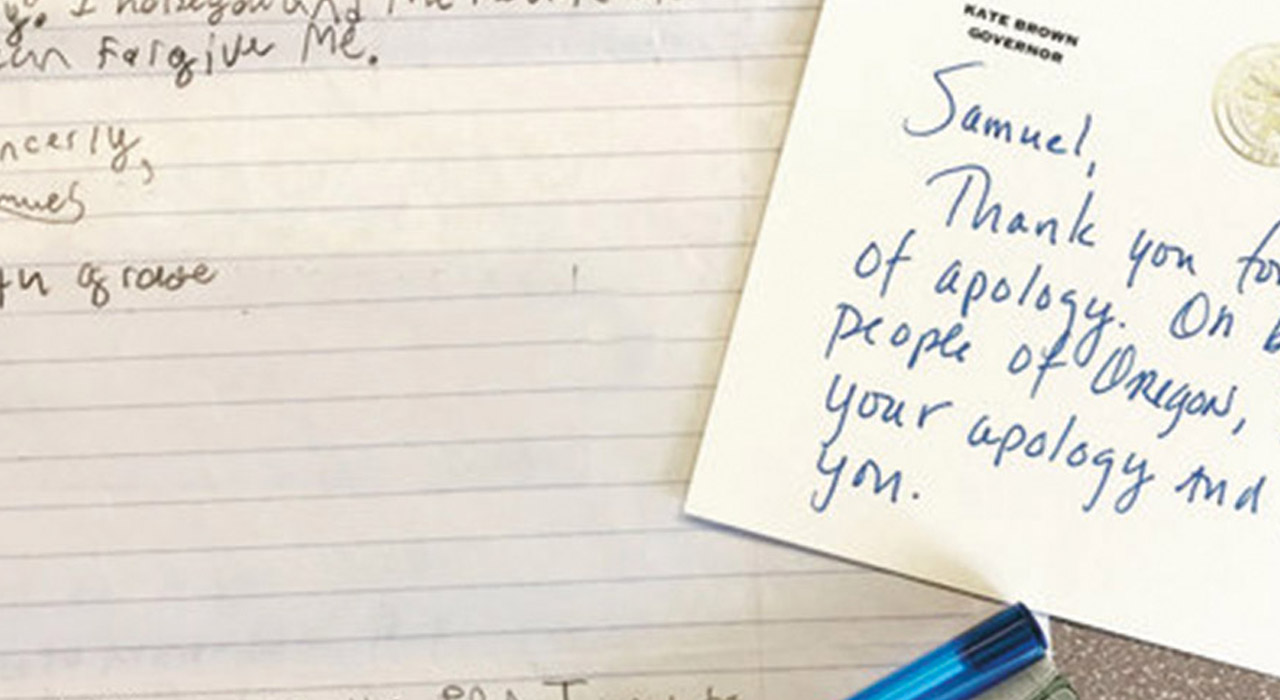 y. I hope you and the
can Forgive Me.
ncerly,
amuel
grade
I
KATE BROWN
GOVERNOR
Samuel,
Thank you for
of apology. On b
people of Oregon,
your apology and
you.